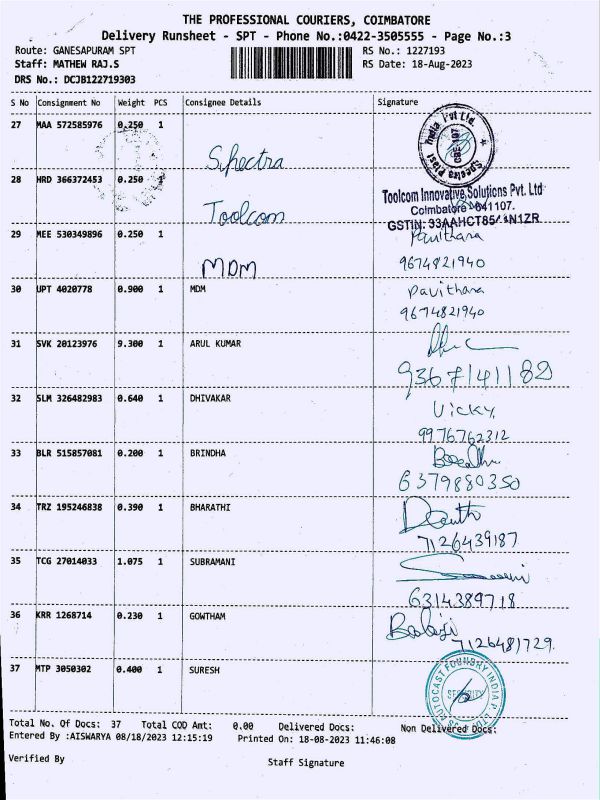 THE PROFESSIONAL COURIERS, COIMBATORE
Delivery Runsheet - SPT - Phone No.:0422-3505555 - Page No.:3
Route: GANESAPURAM SPT RS No.: 1227193
Staff: MATHEW RAJ.S RS Date: 18-Aug-2023
DRS No.: DCJB122719303
S No Consignment No Weight PCS Consignee Details Signature
27 MAA 572585976 0.250 1 Spectra Spectra Plast India Pvt Ltd.
28 HRD 366372453 0.250 1 Toolcom Toolcom Innovative Solutions Pvt. Ltd
Coimbatore 641107.
GSTIN: 33AAHCT85 N1ZR
29 MEE 530349896 0.250 1 MDM Pavithara
9674821940
30 UPT 4020778 0.900 1 MDM Pavithara
9674821940
31 SVK 20123976 9.300 1 ARUL KUMAR
9367141182
32 SLM 326482983 0.640 1 DHIVAKAR Vicky
9976762312
33 BLR 515857081 0.200 1 BRINDHA
6379880350
34 TRZ 195246838 0.390 1 BHARATHI
7126439187
35 TCG 27014033 1.075 1 SUBRAMANI
6314389718
36 KRR 1268714 0.230 1 GOWTHAM Balaji
7126481729.
37 MTP 3050302 0.400 1 SURESH AUTOCAST FOUNDRY INDIA P. LTD SECURITY
Total No. Of Docs: 37 Total COD Amt: 0.00 Delivered Docs: Non Delivered Docs:
Entered By :AISWARYA 08/18/2023 12:15:19 Printed On: 18-08-2023 11:46:08
Verified By Staff Signature